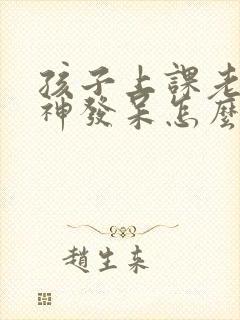 孩子上課老
神發呆怎麼
趙生来